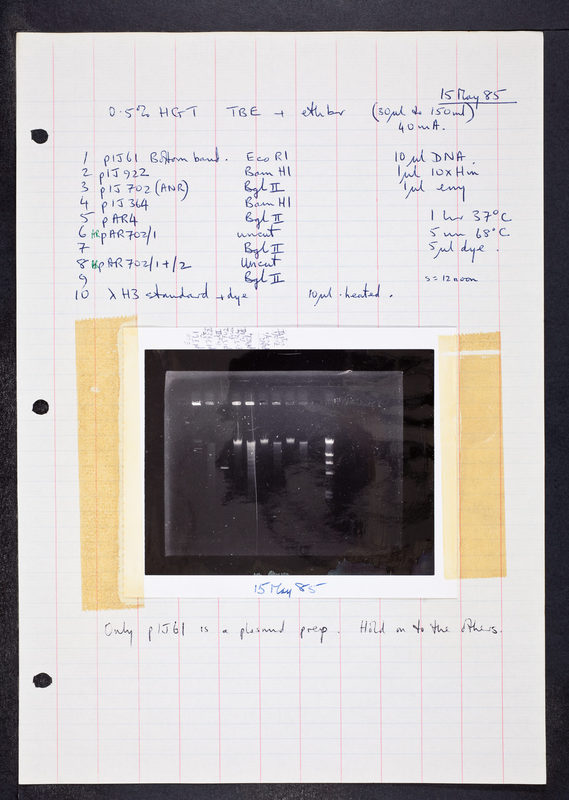 15 May 85
0.5% HGT TBE + ethbr (30µl to 150ml)
40mA.
1 pIJ61 Bottom band. EcoRI 10µl DNA.
2 pIJ922 Bam HI 1µl 10XHin
3 pIJ702 (ANR) Bgl II 1µl enz
4 pIJ364 Bam HI
5 pAR4 Bgl II 1 hr 37°C
6 pAR702/1 uncut 5 min 68°C
7 Bgl II 5µl dye.
8 pAR702/1+/2 Uncut
9 Bgl II s=12 noon
10 λ H3 standard + dye 10µl heated.
15 May 85
Only pIJ61 is a plasmid prep. Hold on to the others.